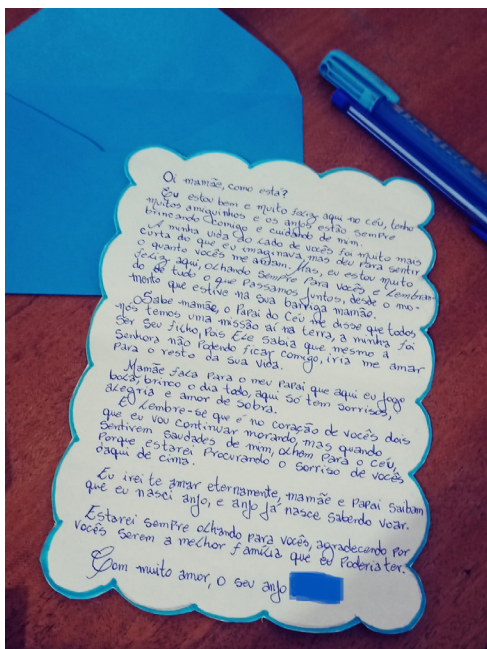 Oi mamãe, como está?
Eu estou bem e muito feliz aqui no céu, tenho
muitos amiguinhos e os anjos estão sempre
brincando comigo e cuidando de mim.
A minha vida do lado de vocês foi muito mais
curta do que eu imaginava, mas deu para sentir
o quanto vocês me amam. Mas, eu estou muito
feliz aqui, olhando sempre para vocês e lembran-
do de tudo o que passamos juntos, desde o mo-
mento que estive na sua barriga mamãe.
Sabe mamãe, o Papai do Céu me disse que todos
nós temos uma missão aí na terra, a minha foi
ser seu filho, pois Ele sabia que mesmo a
Senhora não podendo ficar comigo, iria me amar
para o resto da sua vida.
Mamãe fala para o meu Papai que aqui eu jogo
bola, brinco o dia todo, aqui só tem sorrisos,
alegria e amor de sobra.
E lembre-se que é no coração de vocês dois
que eu vou continuar morando, mas quando
sentirem saudades de mim, olhem para o céu,
porque estarei procurando o sorriso de vocês
daqui de cima.
Eu irei te amar eternamente, mamãe e Papai saibam
que eu nasci anjo, e anjo já nasce sabendo voar.
Estarei sempre olhando para vocês, agradecendo por
vocês serem a melhor família que eu poderia ter.
Com muito amor, o seu anjo